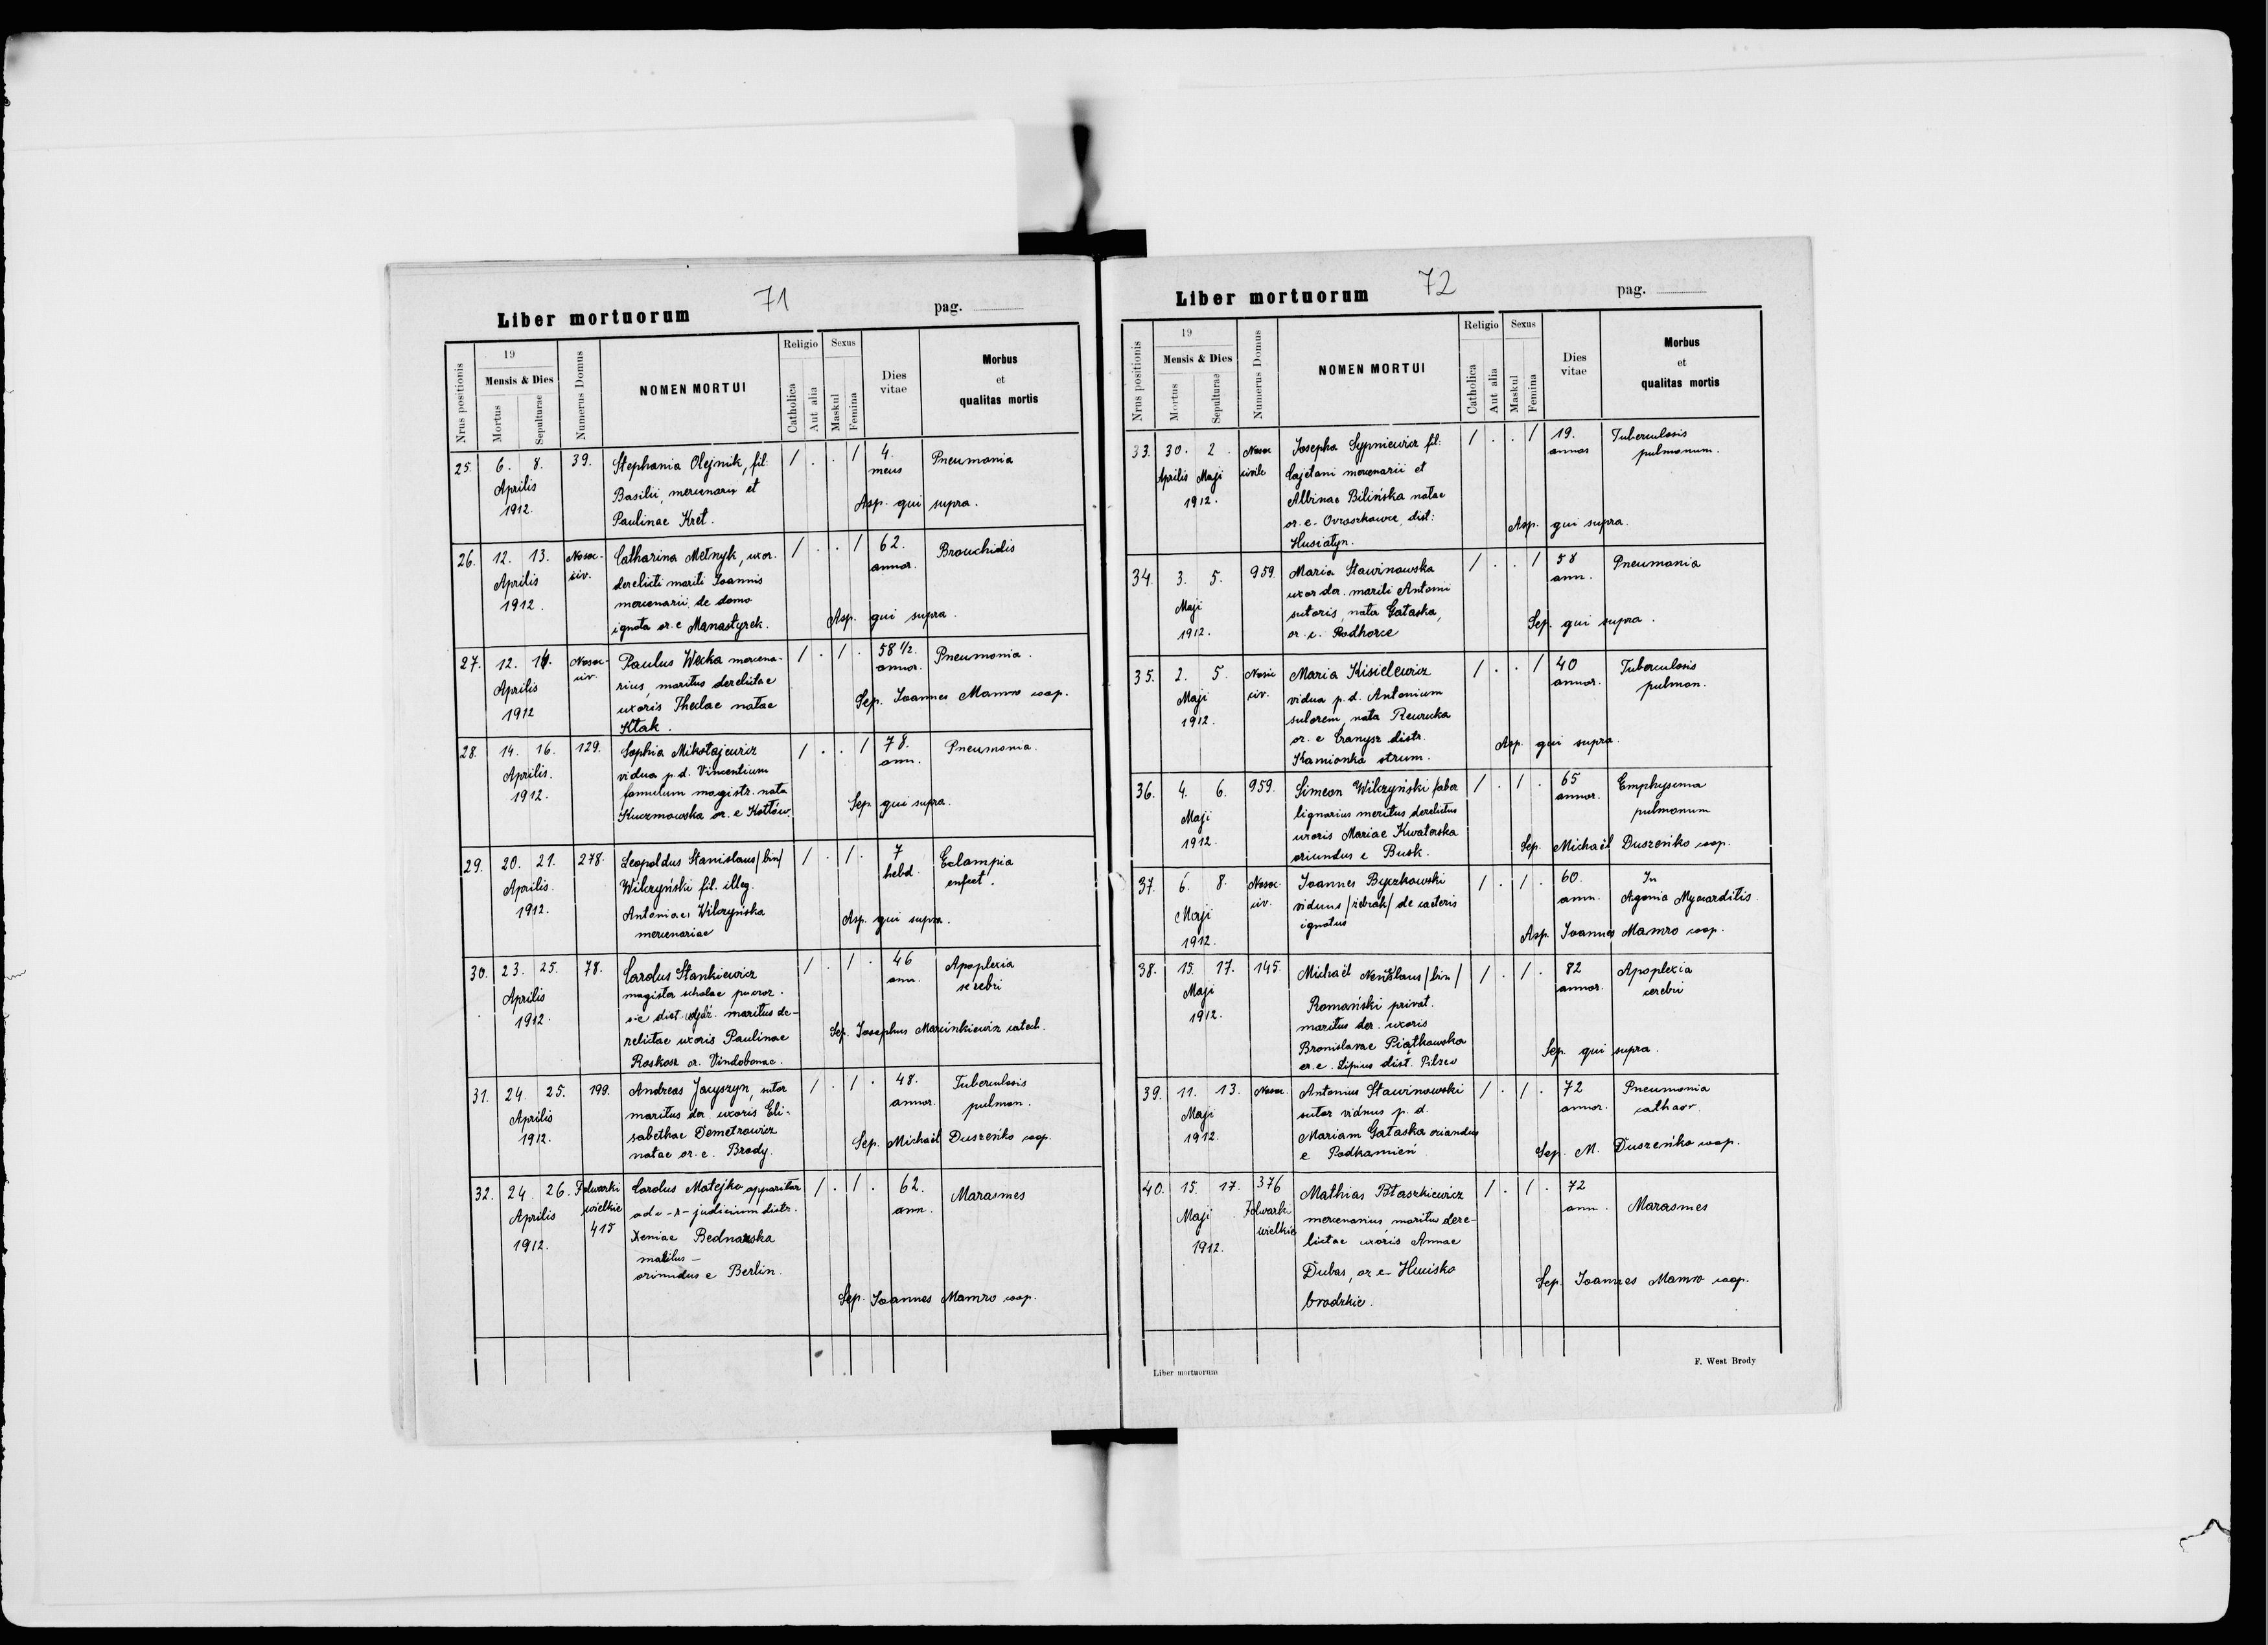 71
Liber mortuorum
pag.
Nrus positionis
19
Mensis & Dies
Mortus
Sepulturae
Numerus Domus
NOMEN MORTUI
Religio
Catholica
Aut alia
Sexus
Maskul
Femina
Dies vitae
Morbus
et
qualitas mortis
25. 6. 8. 39. Stephania Olejnik, fil: / . . / 4. Pneumonia
Aprilis Basilii, mercenarii et meus
1912. Paulinae Kret. Asp. qui supra.
26. 12. 13. Nosoc. Catharina Melnyk, uxor. / . . / 62. Bronchidis
Aprilis civ. derelicti mariti Joannis annor.
1912. mercenarii de domo
ignota or. e Manastyrek. Asp. qui supra.
27. 12. 14. Nosoc. Paulus Wecka mercena- / . / . 58 1/2. Pneumonia.
Aprilis civ. rius, maritus derelictae annor.
1912 uxoris Theclae natae Sep. Joannes Mamro coop.
Kłak.
28. 14. 16. 129. Sophia Mikołajewicz / . . / 78. Pneumonia.
Aprilis. vidua p. d. Vincentium ann.
1912. famulum magistr. nata Sep. qui supra.
Kuczmowska or. e Kołtów.
29. 20. 21. 278. Leopoldus Stanislaus /bin/ / . / . 7 Eclampia
Aprilis. Wilczyński fil. illeg. hebd. enfect.
1912. Antoniae Wilczyńska Asp. qui supra.
mercenariae
30. 23. 25. 78. Carolus Stankiewicz / . / . 46 Apoplexia
Aprilis magister scholae pueror. ann. cerebri
1912. dist. maritus de-
relictae uxoris Paulinae Sep. Josephus Marcinkiewicz catech.
Roskosz or. Vindobonae.
31. 24. 25. 199. Andreas Jacyszyn, sutor / . / . 48. Tuberculosis
Aprilis maritus der. uxoris Eli- annor. pulmon.
1912. sabethae Demetrowicz Sep. Michaël Duszeńko coop.
natae or. e. Brody.
32. 24. 26. Folwarki Carolus Matejko apparitor / . / . 62. Marasmes
Aprilis wielkie judicium distr. ann.
1912. 415 Xeniae Bednarska
maritus –
oriundus e Berlin.
Sep. Joannes Mamro coop.
72
Liber mortuorum
pag.
Nrus positionis
19
Mensis & Dies
Mortus
Sepulturae
Numerus Domus
NOMEN MORTUI
Religio
Catholica
Aut alia
Sexus
Maskul
Femina
Dies vitae
Morbus
et
qualitas mortis
33. 30. 2. Nosoc Josepha Sypniewicz fil: / . . / 19. Tuberculosis
Aprilis Maji civile Cajetani mercenarii et annor pulmonum.
1912. Albinae Bilińska natae
or. e. Owroszkowce, dist: Asp. qui supra.
Husiatyn.
34. 3. 5. 959. Maria Sławinowska / . . / 58 Pneumonia
Maji uxor der. mariti Antonii ann.
1912. sutoris, nata Gałaska, Sep. qui supra.
or. e. Podhorce
35. 2. 5. Nosoc Maria Kisielewicz / . . / 40 Tuberculosis
Maji civ. vidua p. d. Antonium annor. pulmon.
1912. sutorem, nata
or. e Cranysz distr. Asp. qui supra.
Kamionka strum.
36. 4. 6. 959. Simeon Wilczyński faber / . / . 65 Emphysema
Maji lignarius maritus derelictus annor. pulmonum
1912. uxoris Mariae Kwatorska
oriundus e Busk. Sep. Michaël Duszeńko coop.
37. 6. 8. Nosoc. Joannes Byczkowski / . / . 60. In
Maji civ. viduus /żebrak/ de caeteris ann. Agonia Myocarditis.
1912. ignotus Asp. Joannes Mamro coop.
38. 15. 17. 145. Michaël Venceslaus /bin/ / . / . 82 Apoplexia
Maji Romański privat. annor. cerebri
1912. maritus der. uxoris
Bronislavae Piątkowska Sep. qui supra.
or. e. Lipius dist. Pilzno
39. 11. 13. Nosoc. Antonius Sławinowski / . / . 72 Pneumonia
Maji sutor viduus p. d. annor. cathaor.
1912. Mariam Gałaska oriundus
e Podkamień Sep. M. Duszeńko coop.
40. 15. 17. 376 Mathias Błaszkiewicz / . / . 72 Marasmes
Maji Folwarki mercenarius, maritus dere- ann.
1912. wielkie lictae uxoris Annae
Dubas, or. e Hucisko Sep. Joannes Mamro coop.
brodzkie.
Liber mortuorum
F. West Brody